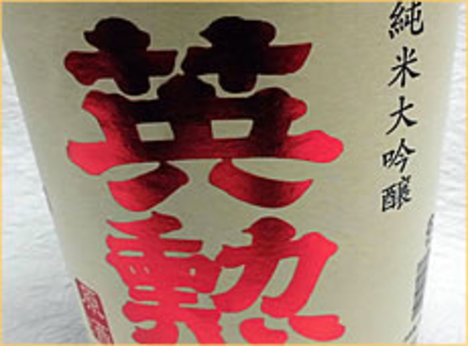 純米大吟醸
英勲